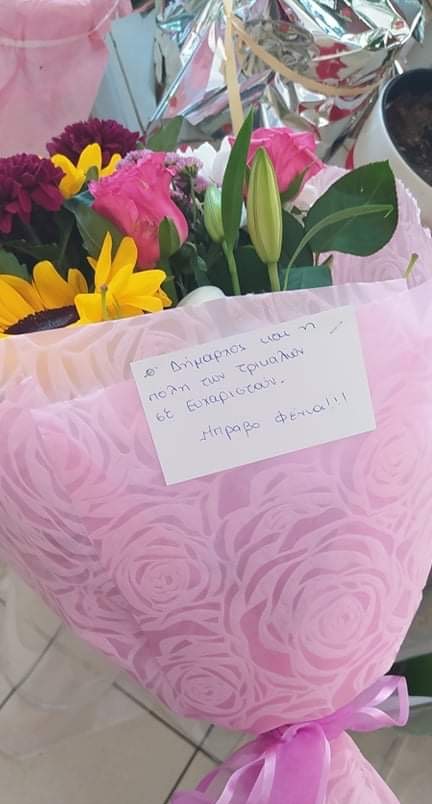 Ο Δήμαρχος και η
πολη των τρικαλων
σε ευχαριστουν.
Μπραβο Φένια!!!